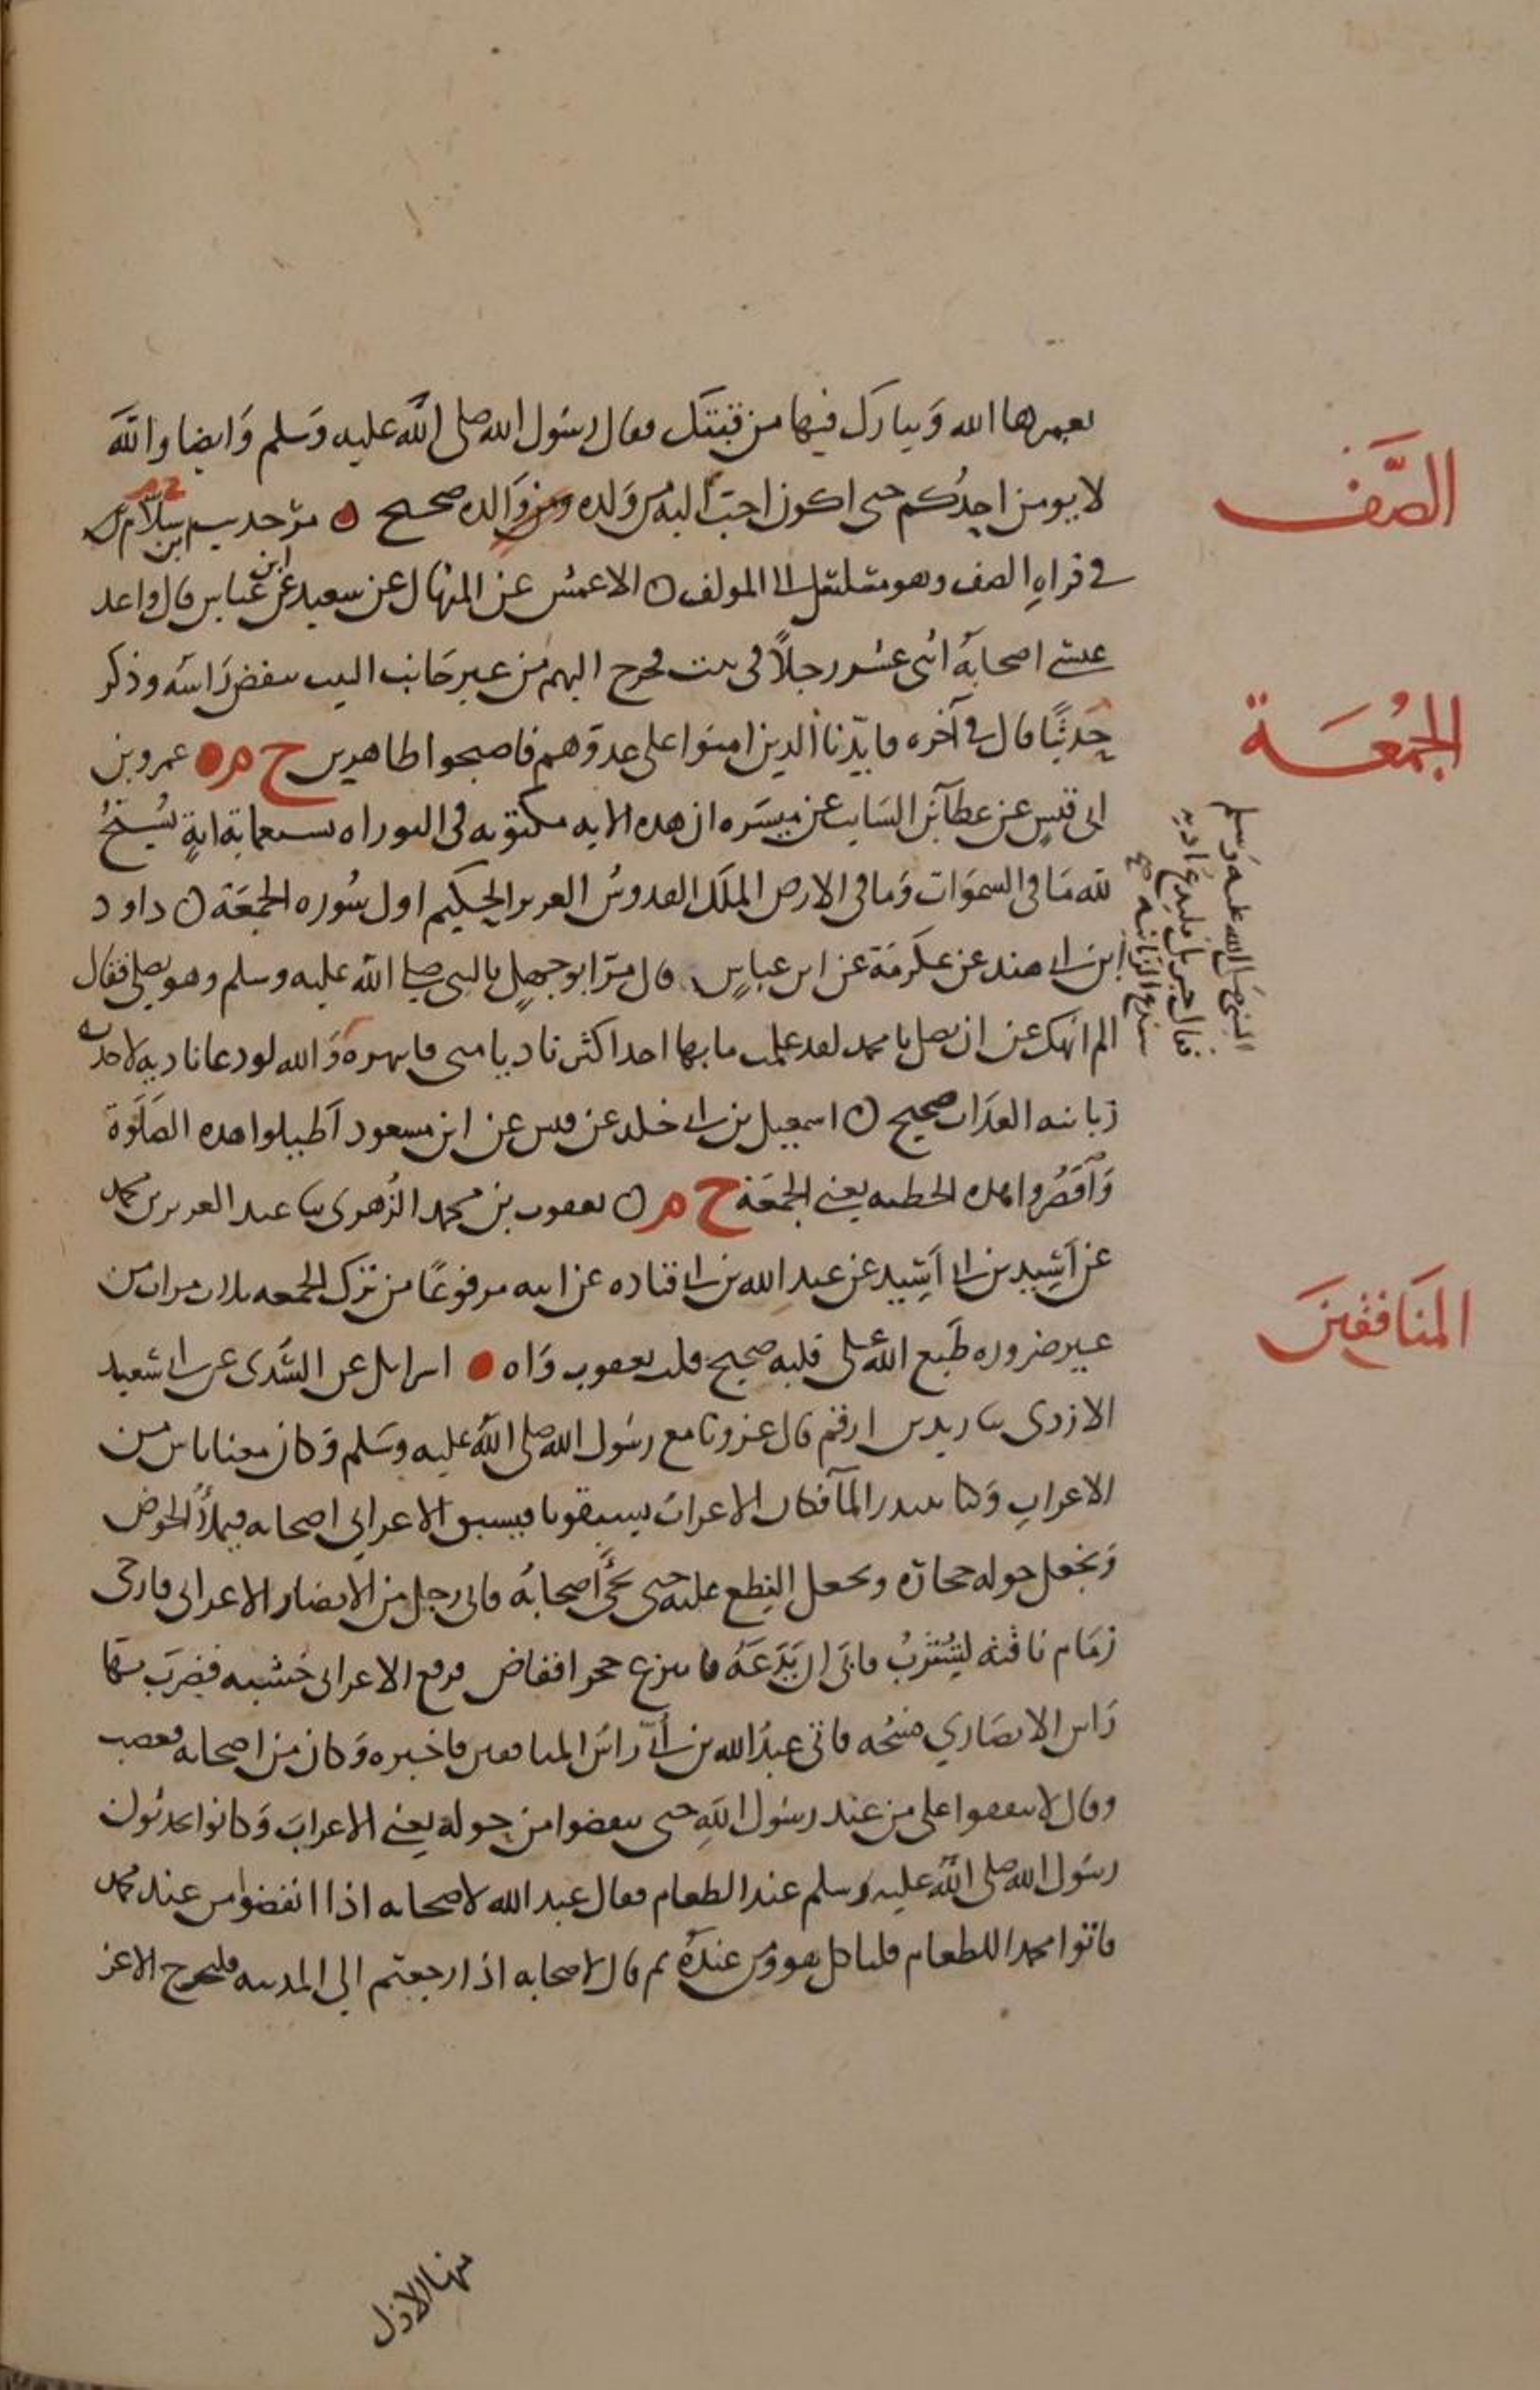 يعمرها الله ويبارك فيها من قبتك فقال رسول الله صلى الله عليه وسلم وايضا والله
الصَّف
لا يومن احدكم حتى اكون احب اليه من ولده ومن والده صحيح مر حديث بن سلام
في قراه الصف وهو متسلسل الى المولف الاعمش عن المنهال عن سعيد عن ابن عباس قال واعد
عيسى اصحابه اثنى عشر رجلاً في بيت فخرج اليهم من عير جانب البيت ينفض رأسه وذكر
الجُمعَة
حَديثًا قال في آخره فايّدنا الذين امنوا على عدوّهم فاصبحوا ظاهرين خ م عمرو بن
ابي قيس عن عطآء بن السايب عن ميسره ان هذه الايه مكتوبه في التوراه بسبعماية اية يُسَبّحُ
لله مَا في السموَات وَما في الارض الملك القدوس العزيز الحكيم اول سُوره الجمعَة داود
ابن ابي هند عن عكرمَة عن ابن عباسٍ قال مرّ ابو جهلٍ بالنبي صلى الله عليه وسلم وهو يصلي فقال
الم انهك عن ان تصلي يا محمد لقد علمت ما بها احد اكثر ناديا مني فانتهره والله لو دعا ناديه لاخذته
النبي صَلى الله عليه وَسلم
فقال جبريل فليدع ناديه
سندع الزبانيه
زبانيه العذاب صحيح اسمعيل بن ابي خلد عن قيس عن ابن مسعود اَطيلوا هذه الصَلَوة
وَاَقصُروا هذه الخطبه يعني الجمعَة خ م يعقوب بن محمد الزُهرى ثنا عبد العزيز بن محمد
عن اَسِيد بن ابي اَسِيد عن عبد الله بن ابي قتاده عن ابيه مرفوعًا من ترك الجمعه ثلاث مرات من
المنَافقين
غير ضروره طَبع الله على قلبه صحيح قلت يعقوب وَاه اسرايل عن السُّدى عن ابي سعيد
الازدى ثنا زيد بن ارقم قال غزونا مع رسُول الله صلى الله عليه وسَلم وَكان معنا ناس من
الاعراب وَكنا نبتدر المآ فكان الاعرابُ يسبقونا فيسبق الاعرابي اصحابه فيملأُ الحوض
وَيجعل حوله حجاره ويجعل النِطع عليه حتى يجئَ اصحابُه فاتى رجل من الانصار الاعرابي فارخى
زمَام ناقته ليَشرَبُ فابَى ان يَدَعَهُ فانتزع حجرا فغاض فرفع الاعرابي خشبه فضربَ بهَا
رَاس الانصَاري فشجّه فاتى عبدُ الله بن أُبيّ راسَ المنافقين فاخبره وَكان من اصحابه فغضب
وقال لا تنفقوا على من عند رسُول اللهِ حتى ينفضوا من حوله يعني الاعرابَ وَكانوا يحدثون
رسُول الله صلى الله عليه وسلم عند الطعام فقال عبد الله لاصحابه اذا انفضوا من عند محمد
فاتوا محمدا للطعام فلياكل هو ومن عنده ثم قال لاصحابه اذا رجعتم الى المدينه فليخرج الاعز
منها الاذل